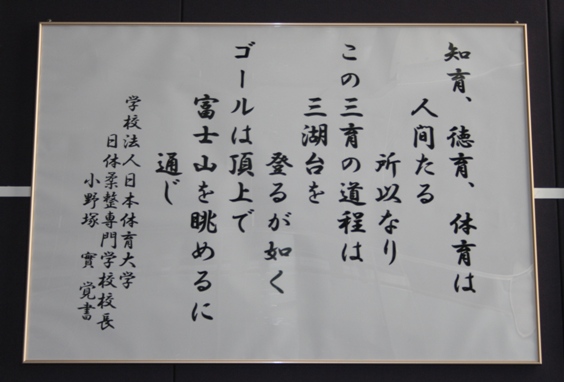 知育、徳育、体育は
人间たる
所以なり
この三育の道程は
三湖台を
登るが如く
ゴールは頂上で
富士山を眺めるに
通じ
学校法人日本体育大学
日体柔整専門学校校長
小野塚 實 覚書